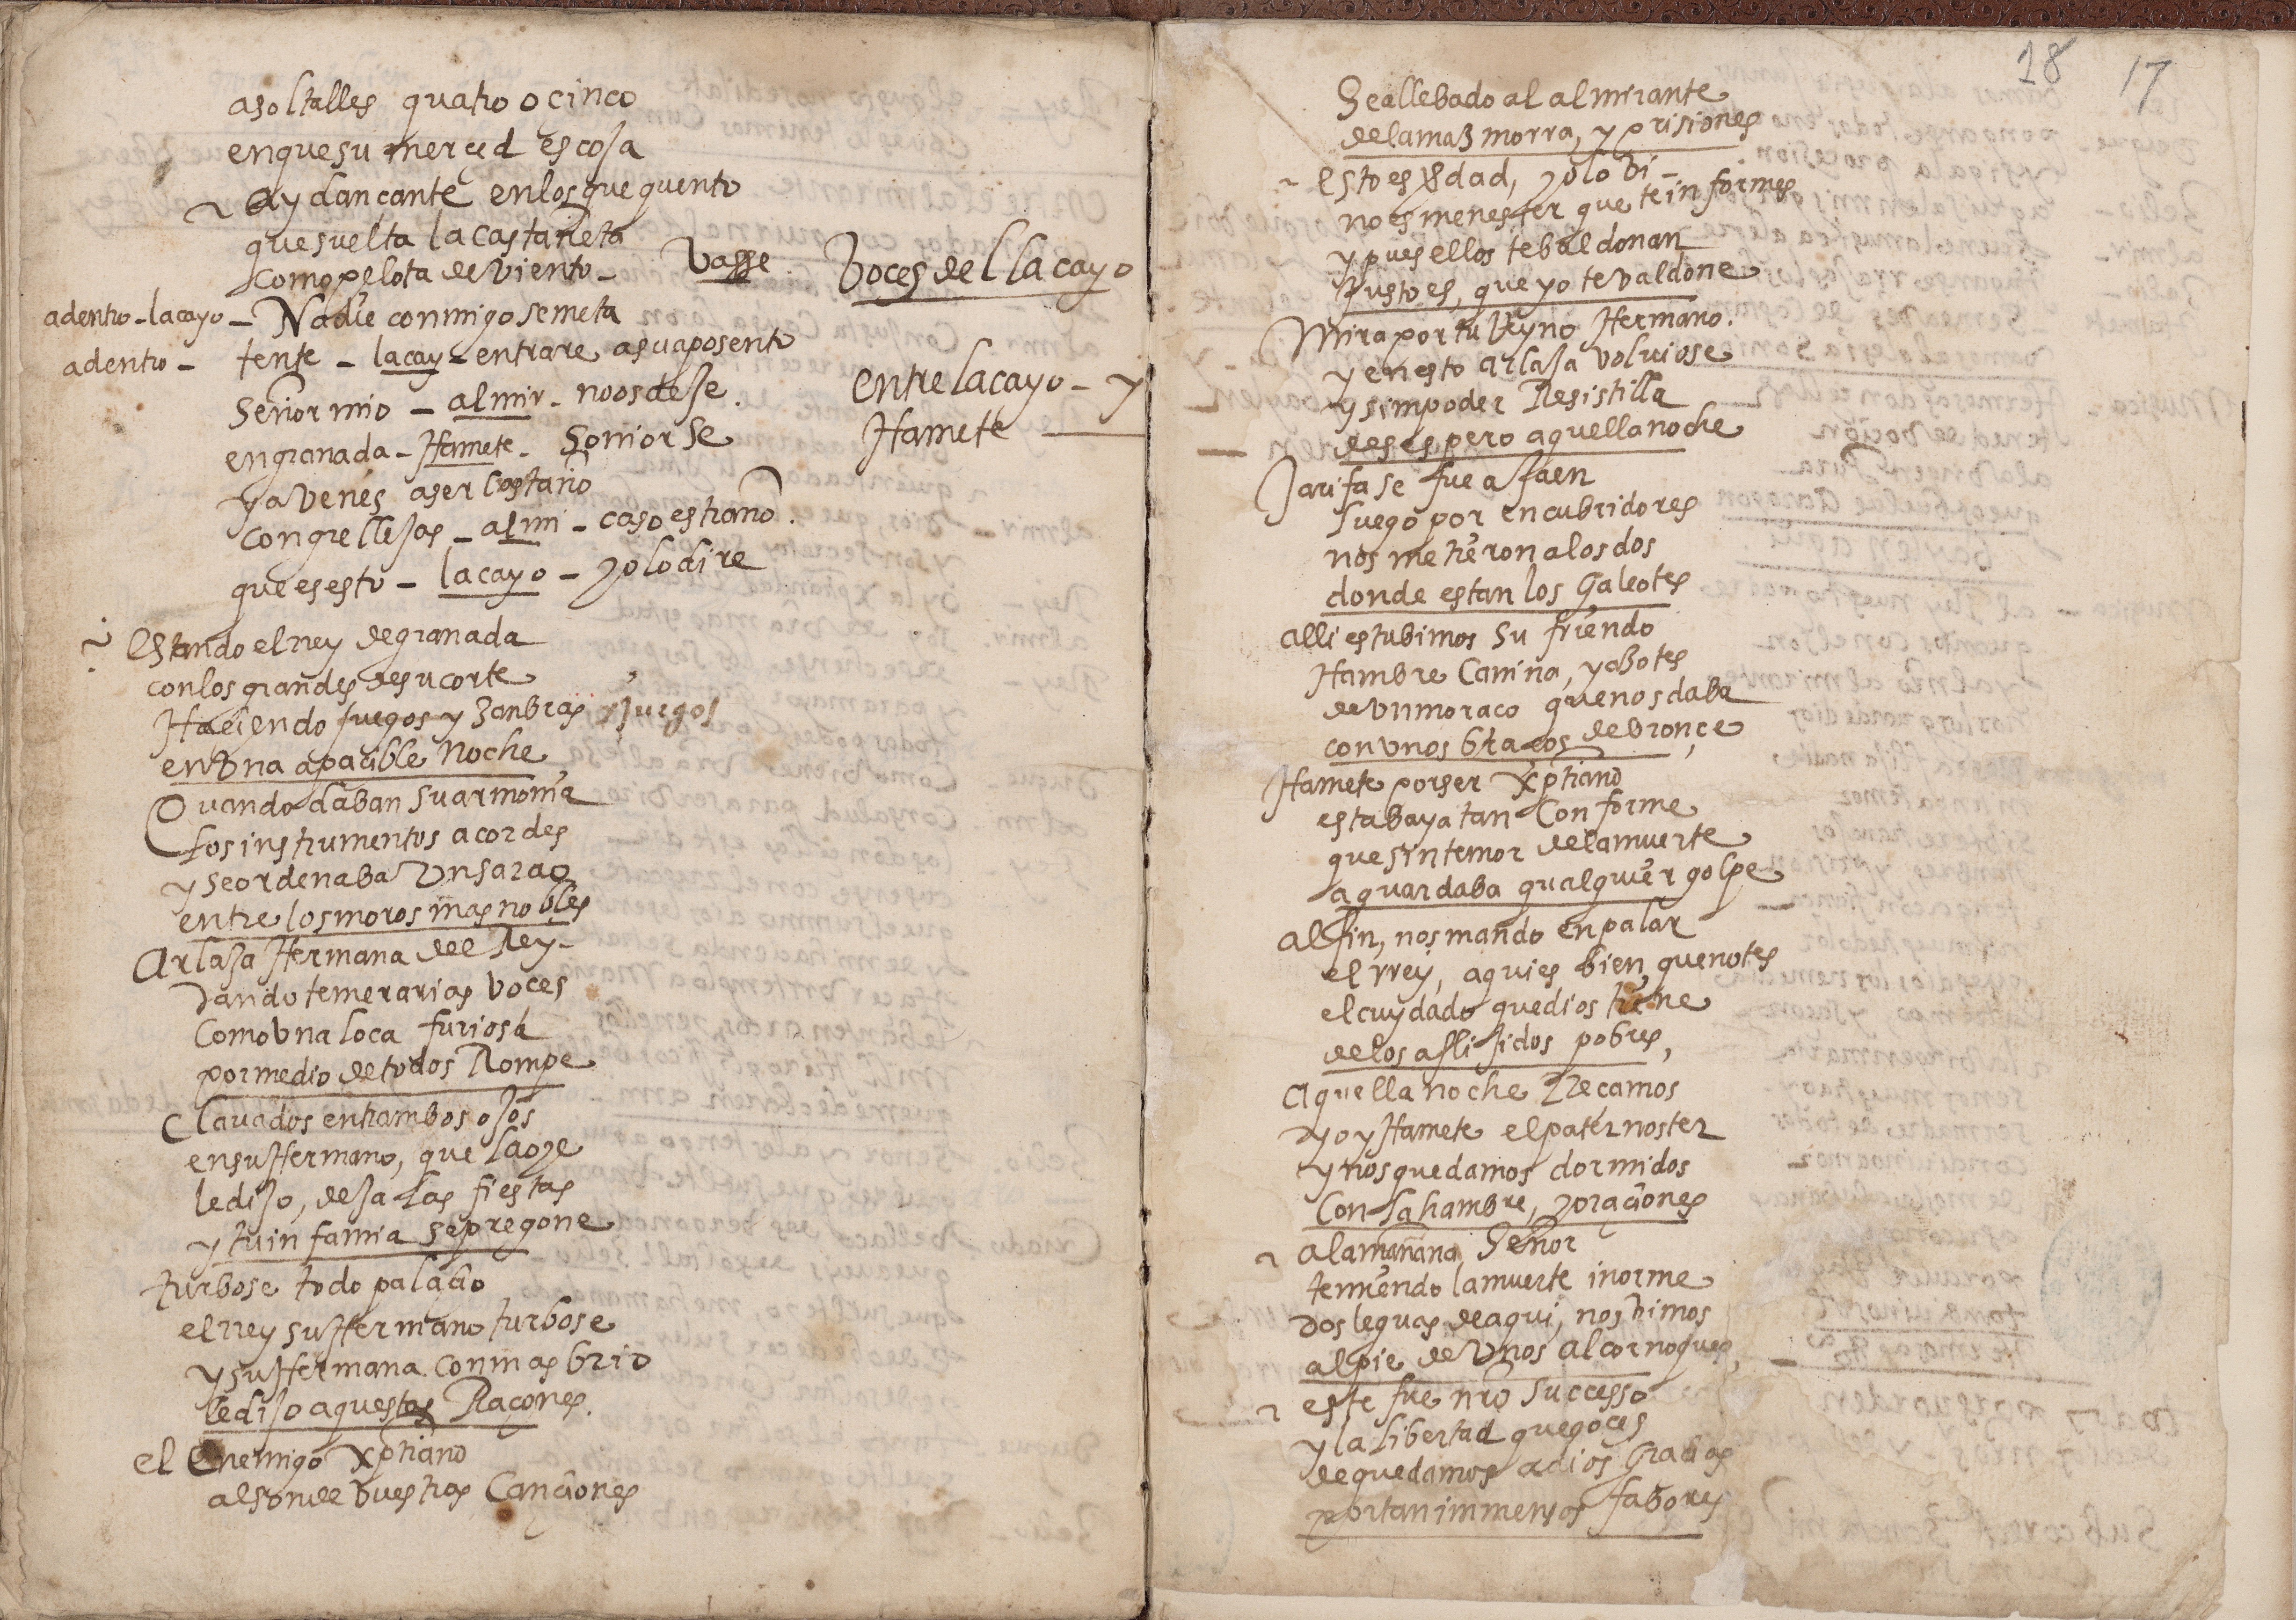 asoltalles quatro o cinco
en que su merced escoja
ay dançante en los que quento
que suelta la castañeta
como pelota de viento - Vasse. Voces del lacayo
adentro - lacayo - Nadie conmigo se meta
adentro - tente - lacay - entrare a su aposento
Señor mio - almir - no os deje. entre lacayo - y
en granada - Hamete - Sonior se Hamete
ya venes aser castaño
con grellejas - almi - caso estraño.
que es esto - lacayo - yo lo dire
Estando el rrey de granada
con los grandes de su corte
Haciendo fuegos y zanbras y juegos
en Vna apacible Noche
Quando daban su armonia
los instrumentos acordes
y se ordenaba Vn sarao
entre los moros mas nobles
Arlaja Hermana del Rey
dando temerarias voces
como vna loca furiosa
por medio de todos Rompe
Clauados entrambos ojos
en su Hermano, que la oye
le dijo, deja las fiestas
y tu infamia se pregone
turbose todo palacio
el rrey su Hermano turbose
y su Hermana con mas brio
le dijo aquestas Raçones.
el enemigo Xptiano
al son de vuestras Canciones
18 17
Se a llebado al almirante
de la mazmorra, y prisiones
esto es Vdad, yo lo vi -
no es menester que te informes
y pues ellos te baldonan
Justo es, que yo te valdone
Mira por tu Reyno Hermano.
y en esto Arlaja voluiose
y sim poder Resistilla
desespero aquella noche
Jarifa se fue a Jaen
luego por encubridores
nos metieron a los dos
donde estan los Galeotes
alli estubimos sufriendo
Hambre Canina, y azotes
de vn moraco que nos daba
con vnos braços de bronçe
Hamete por ser Xptiano
estaba ya tan Conforme
que sin temor de la muerte
aguardaba qualquier golpe
al fin, nos mando enpalar
el rrey, aqui es bien que notes
el cuydado que dios tiene
de los aflijidos pobres,
Aquella noche Reçamos
yo y Hamete el paternoster
y nos quedamos dormidos
Con la hambre, y oraciones
a la mañana, Señor
temiendo la muerte inorme
dos leguas de aqui, nos vimos
al pie de Vnos alcornoques,
este fue nro successo
y la libertad que goces
de que damos a dios Gracias
por tan immensos fabores